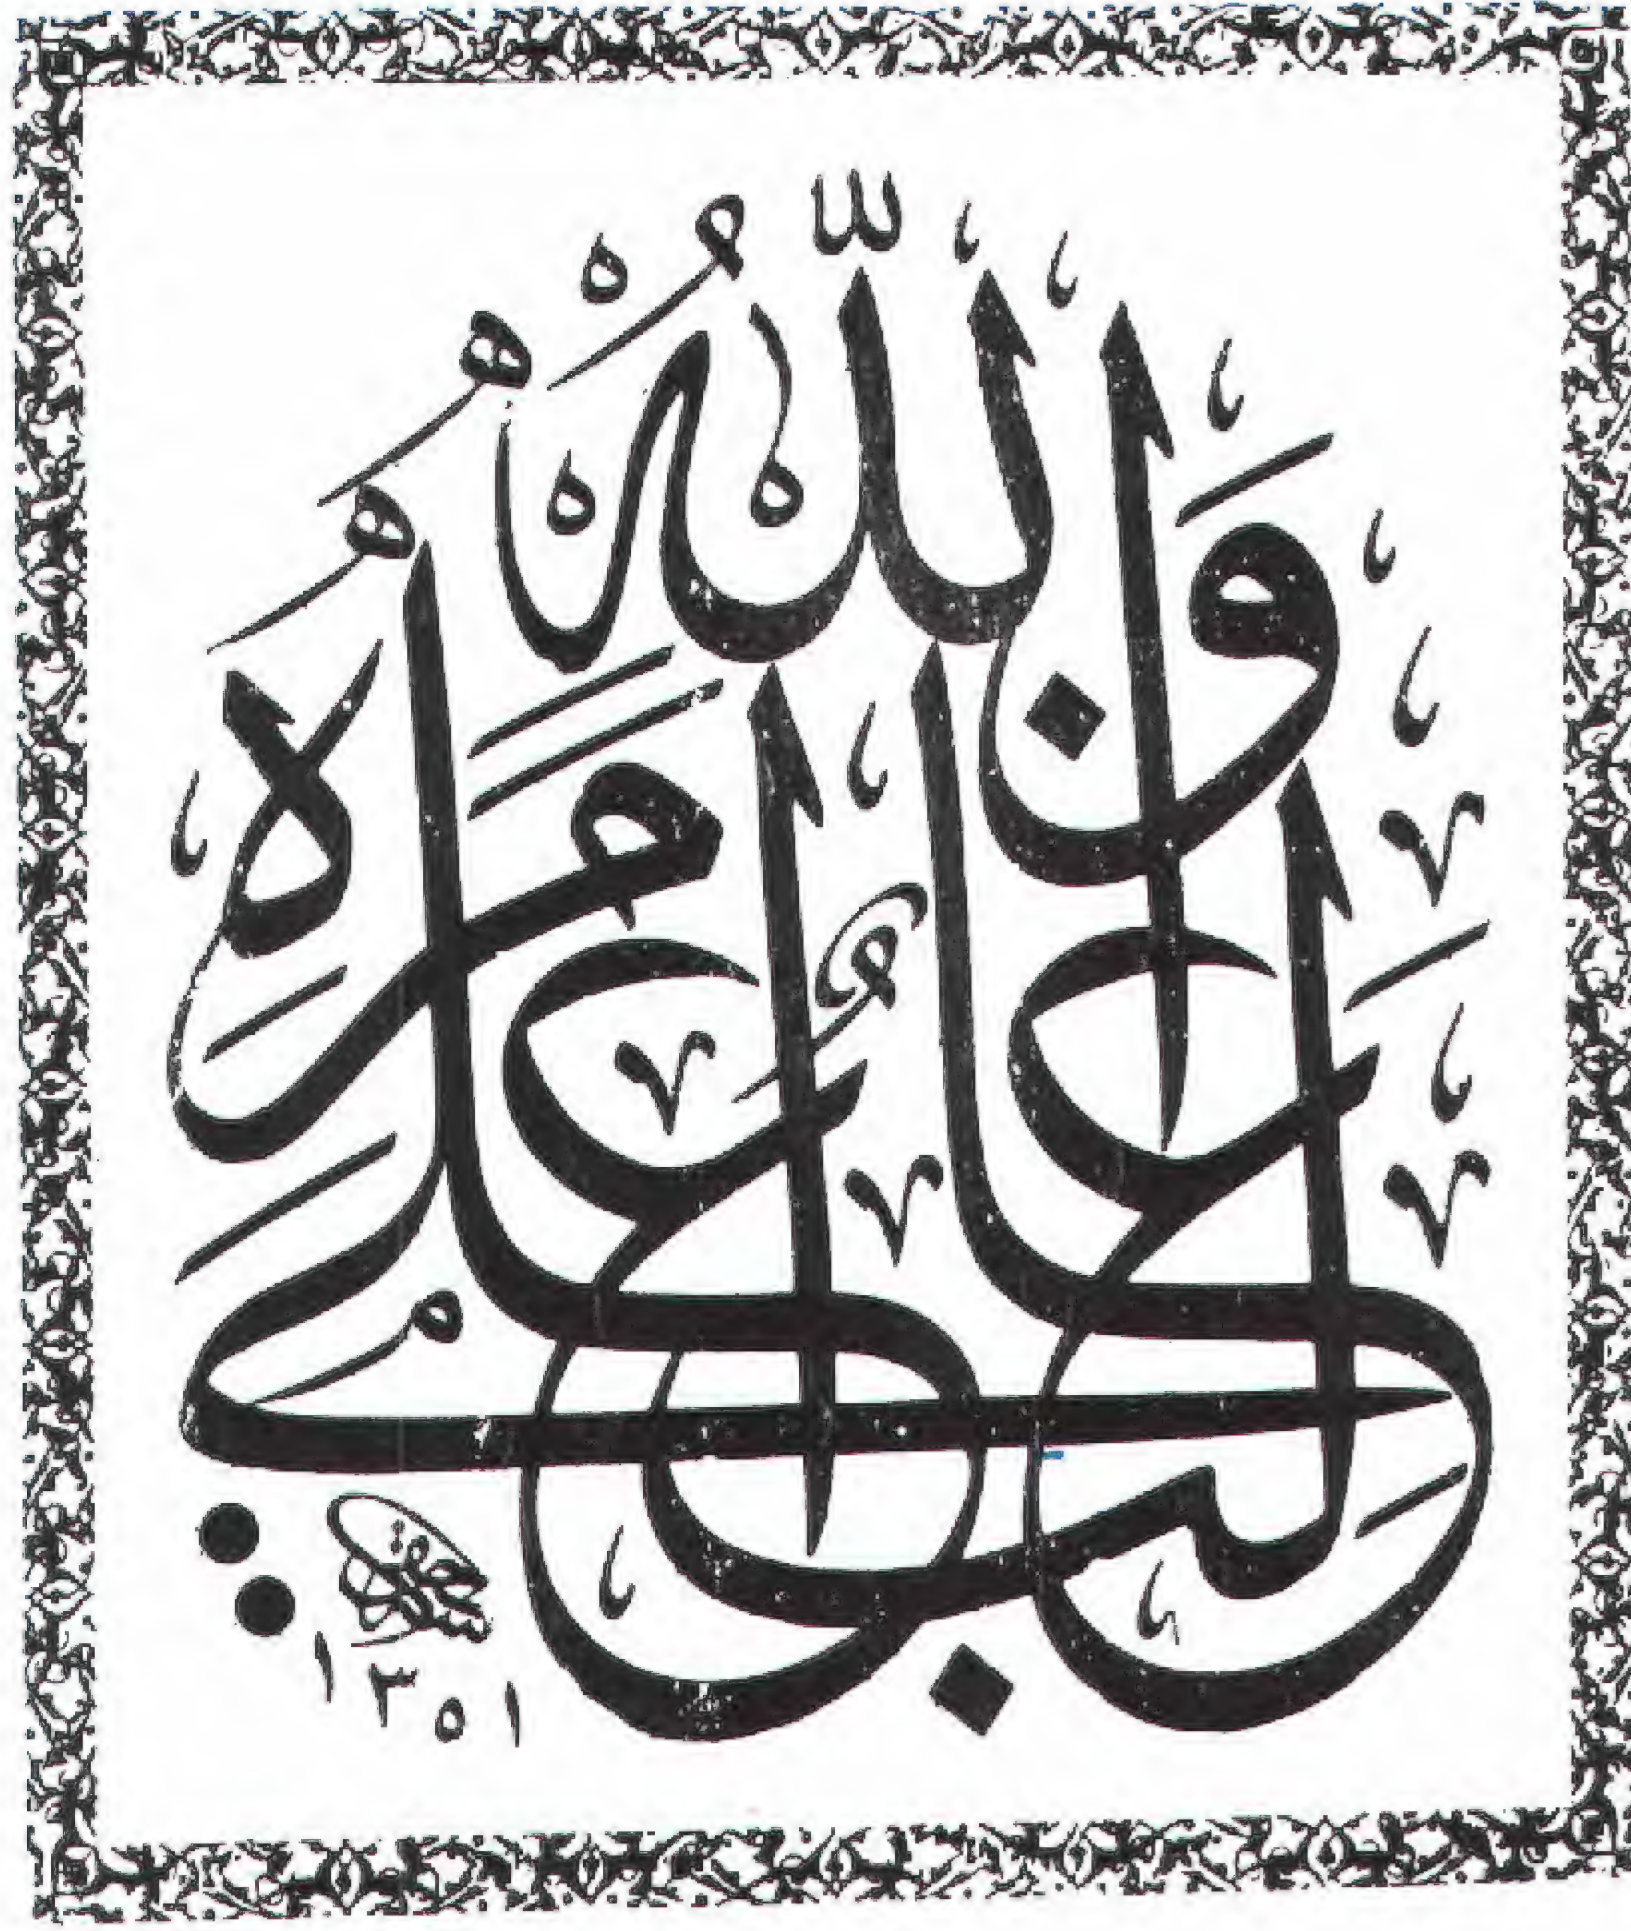 وَاللَّهُ غَالِبٌ عَلَى أَمْرِهِ
١٣٥١